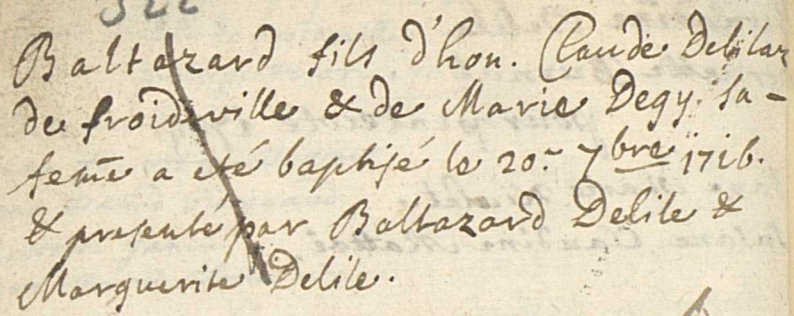 Baltazard fils d'hon. Claude Delilaz
de froideville & de Marie Degy. sa-
feme a eté baptisé le 20. 7bre 1716.
& presenté par Baltazard Delile &
Marguerite Delile.